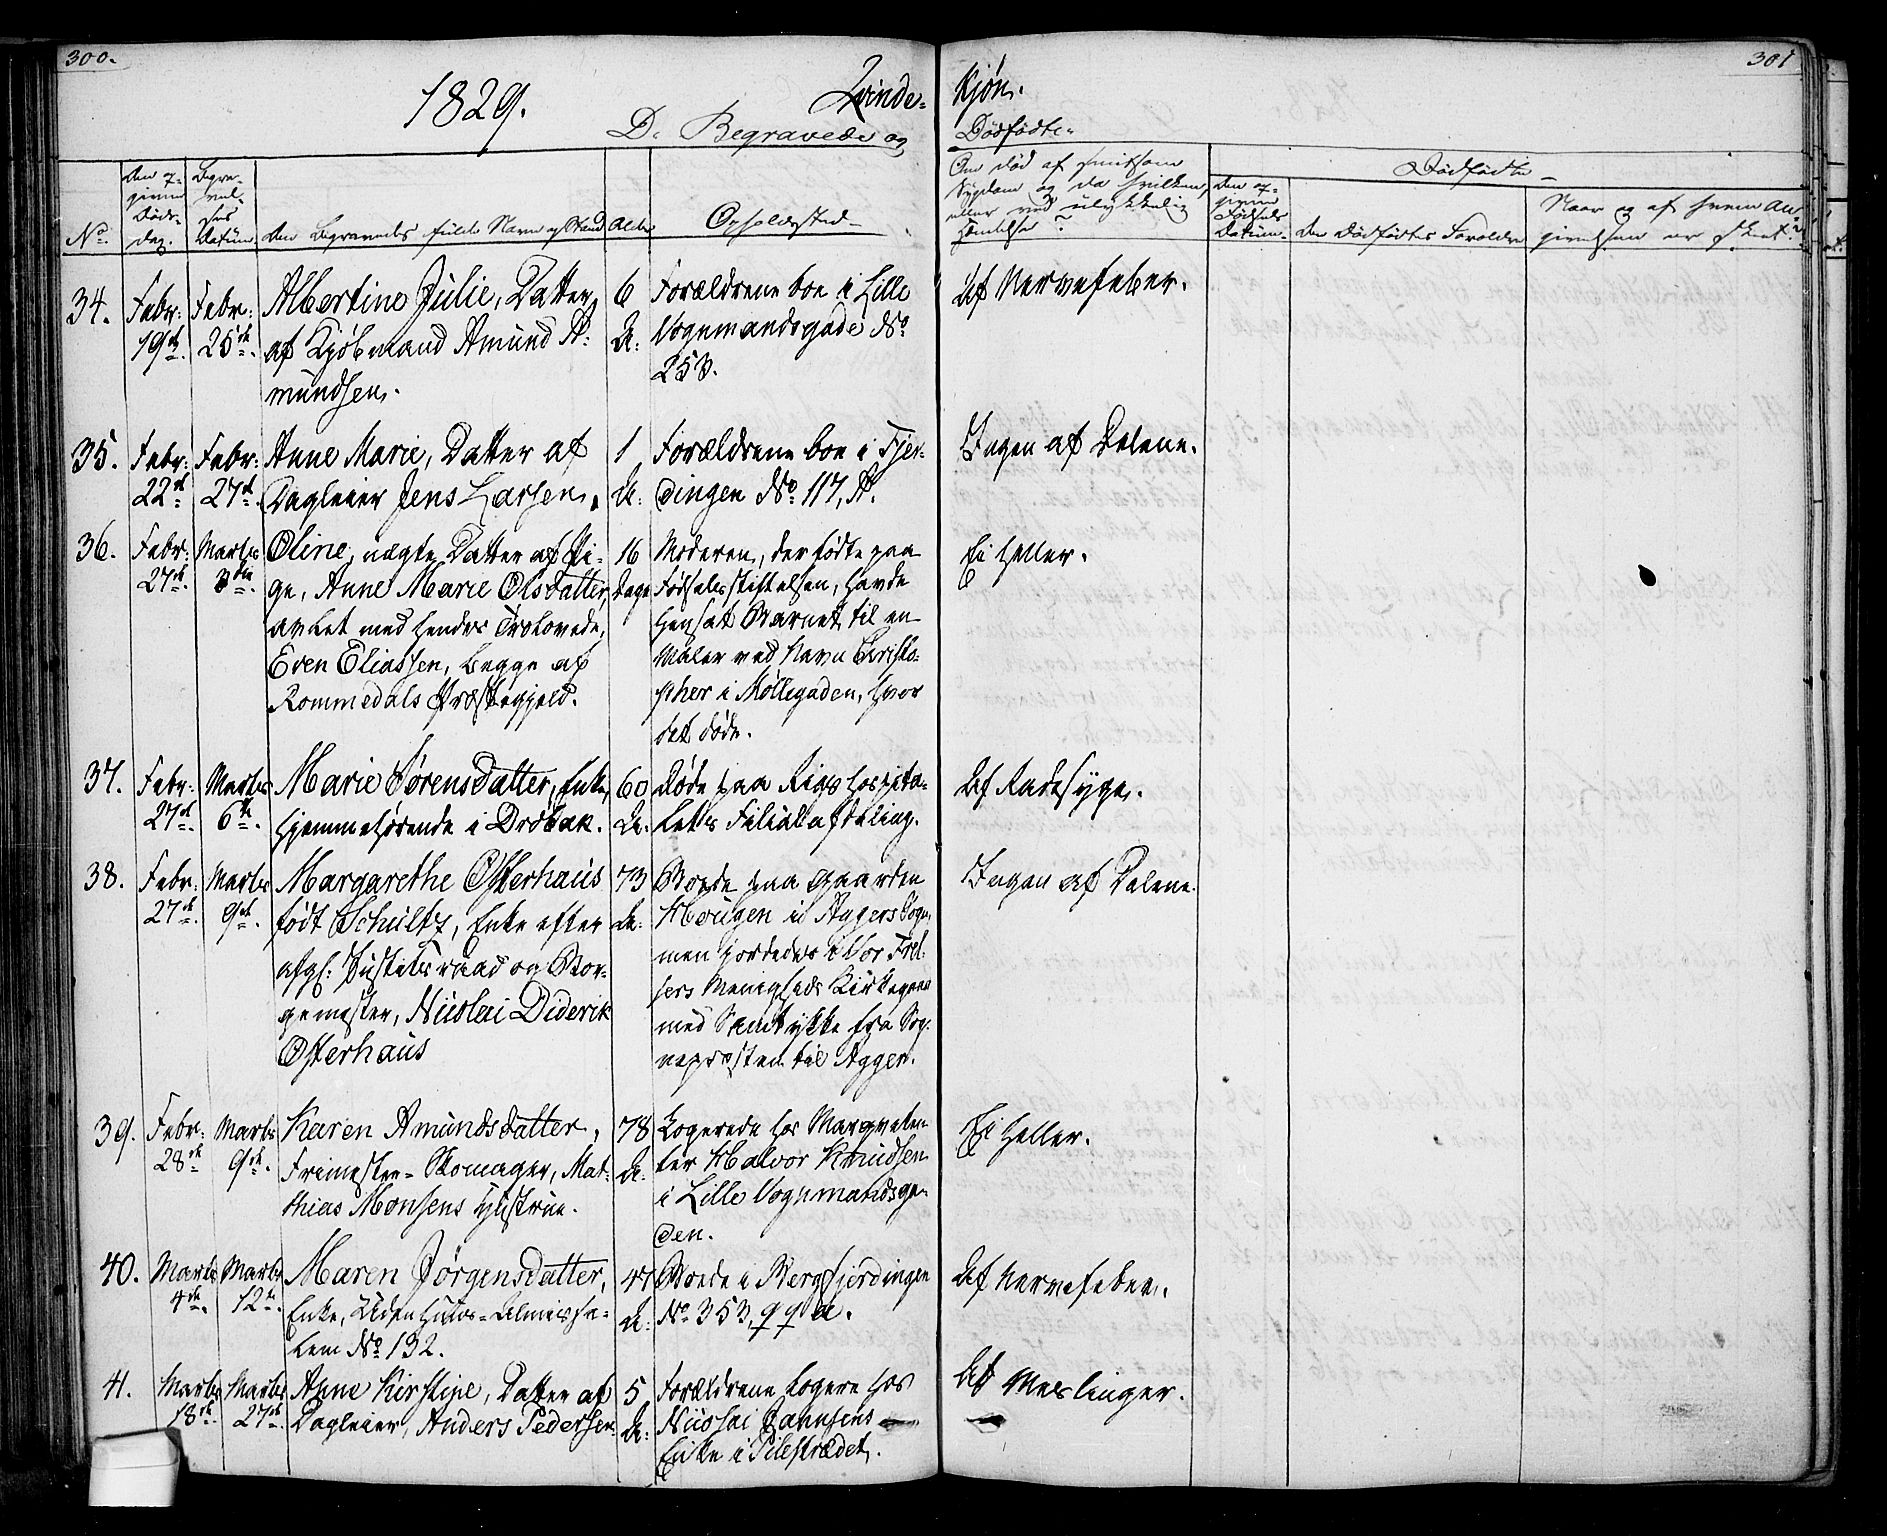 300.
1829.
Qvinde-
D. Begravede og
No
Den op-
given
Døds-
dag.
Begra-
vel-
ses
Datum
Den Begravedes fulde Navn og Stand
Alder
Opholdssted
34. Febr: 19de Febr: 25de
Albertine Julie, Datter
af Kjøbmand Amund A-
mundsen.
6 A:
Forældrene boe i Lille
Vognmandsgade No
253.
35. Febr: 22de Febr: 27de
Anne Marie, Datter af
Dagleier Jens Larsen.
1 A:
Forældrene boe i Fjer-
dingen No 117, A.
36. Febr: 27de Martes 3die
Oline, uægte Datter af Pi-
ge, Anne Marie Olsdatter,
avlet med hendes Trolovede,
Even Eliassen, begge af
Rommedals Præstegjeld.
16 Dage
Moderen, der fødte paa
Fødselsstiftelsen, havde
hensat Barnet til en
Maler ved Navn Christo-
pher i Møllegaden, hvor
det døde.
37. Febr: 27de Martes 6te
Marie Sørensdatter, Enke,
hjemmehørende i Drøbak.
60 A:
Døde paa Rigshospita-
lets Filialafdeling.
38. Febr: 27de Martes 9de
Margarethe Osterhaus
født Schultz, Enke efter
afg: Justitsraad og Bor-
gemester, Nicolai Diderik
Osterhaus
73 A:
Boede paa Gaarden
Hougen i Aggers Sogn,
men jordedes i Vor Frel-
sers Menigheds Kirkegaard
med Samtykke fra Sog-
nepræsten til Agger.
39. Febr: 28de Marts 9de
Karen Amundsdatter,
Frimester-Skomager, Mat-
thias Monsens Hustrue.
78 A:
Logerede hos Marqveten-
ter Halvor Knudsen
i Lille Vognmandsga-
den.
40. Marts 4de Marts 12te
Maren Jørgensdatter,
Enke, Udenhuus-Almisse-
lem No 132.
47 A:
Boede i Bergfjerdingen
No 353, qq a.
41. Marts 18de Marts 27de
Anne Kirstine, Datter af
Dagleier, Anders Pedersen
5 A:
Forældrene logere hos
Nicolai Jannsens
Enke i Pilestrædet.
301
Kjøn.
Dødfødte.
Om død af smitsom
Sygdom og da hvilken,
eller ved ulykkelig
Hændelse?
Dødfødte
Den op-
given
Fødsels
Datum
Den Dødfødtes Forældre
Naar og af hvem An-
givelsen er skeet?
Af Nervefeber.
Ingen af Delene.
Ei heller.
Af Radesyge.
Ingen af Delene.
Ei heller.
Af Nervefeber.
Af Meslinger.